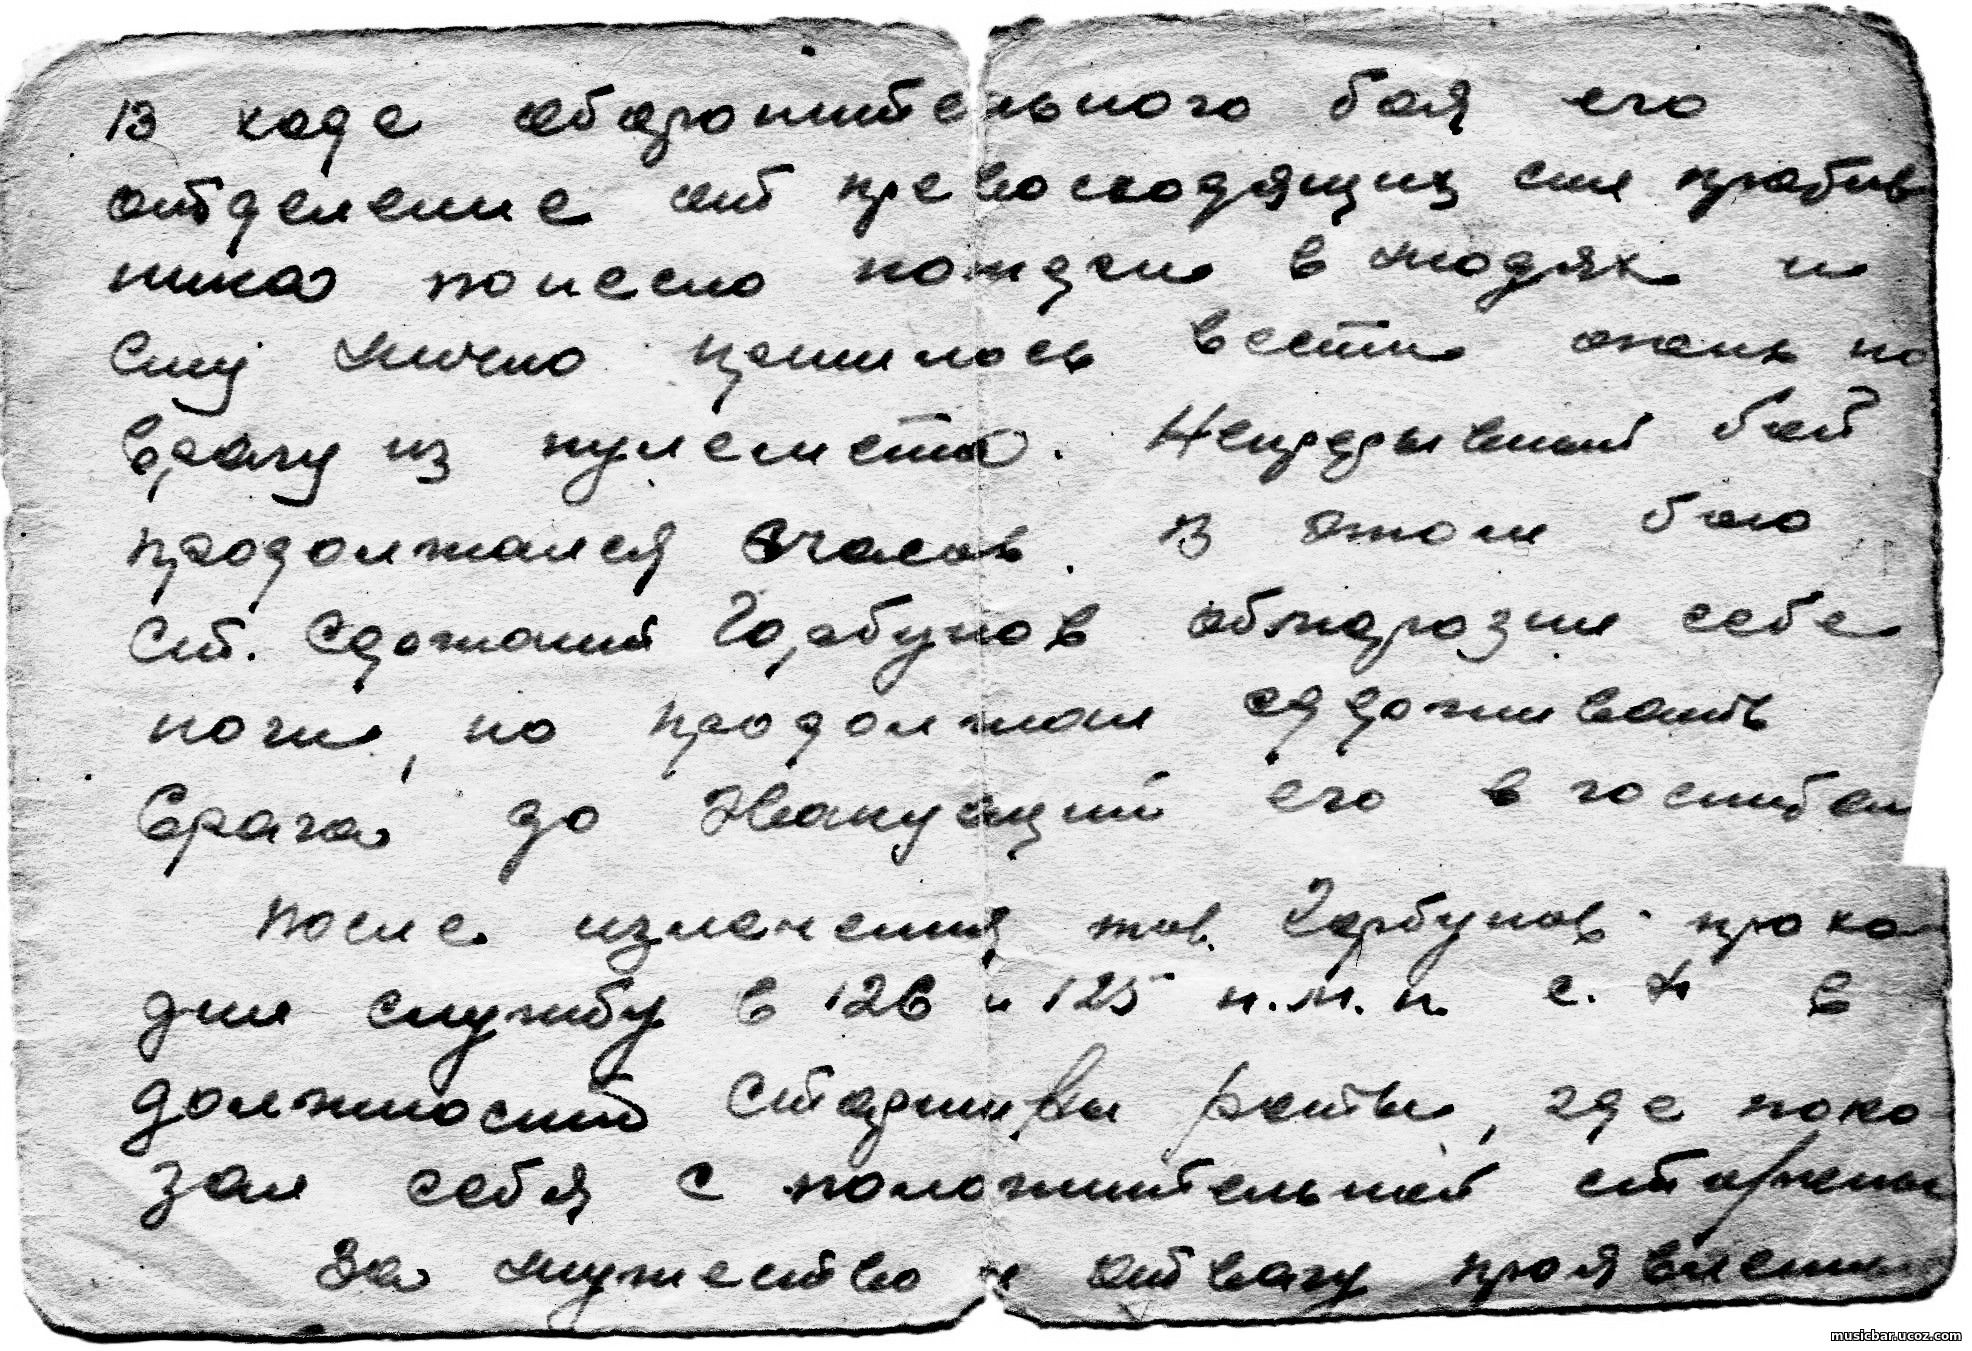 В ходе оборонительного боя его
отделение от превосходящих сил против
ника понесло потери в людях и
ему лично пришлось вести огонь по
врагу из пулемета. Непрерывный бой
продолжался 8 часов. В этом бою
Ст. Сержант Горбунов обморозил себе
ноги, но продолжал сдерживать
врага до Эвакуаций его в госпитал
После излечения тов. Горбунов прохо
дил службу в 126 и 125 п.м.п. с. К в
должности Старшины роты, где пока
зал себя с положительной стороны
За мужество и отвагу проявленны
musicbar.ucoz.com